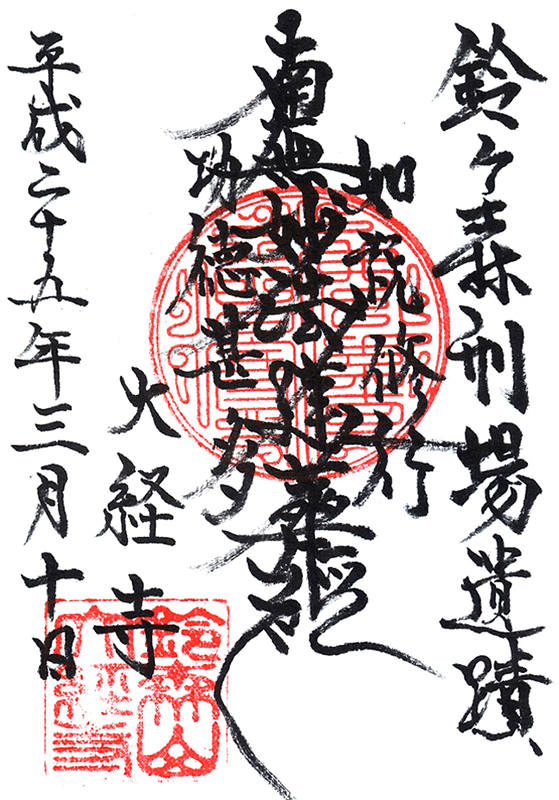 鈴ヶ森刑場遺蹟
如説修行
南無妙法蓮華経
功徳甚多
大経寺
平成二十五年三月十日
鈴森山
大経寺